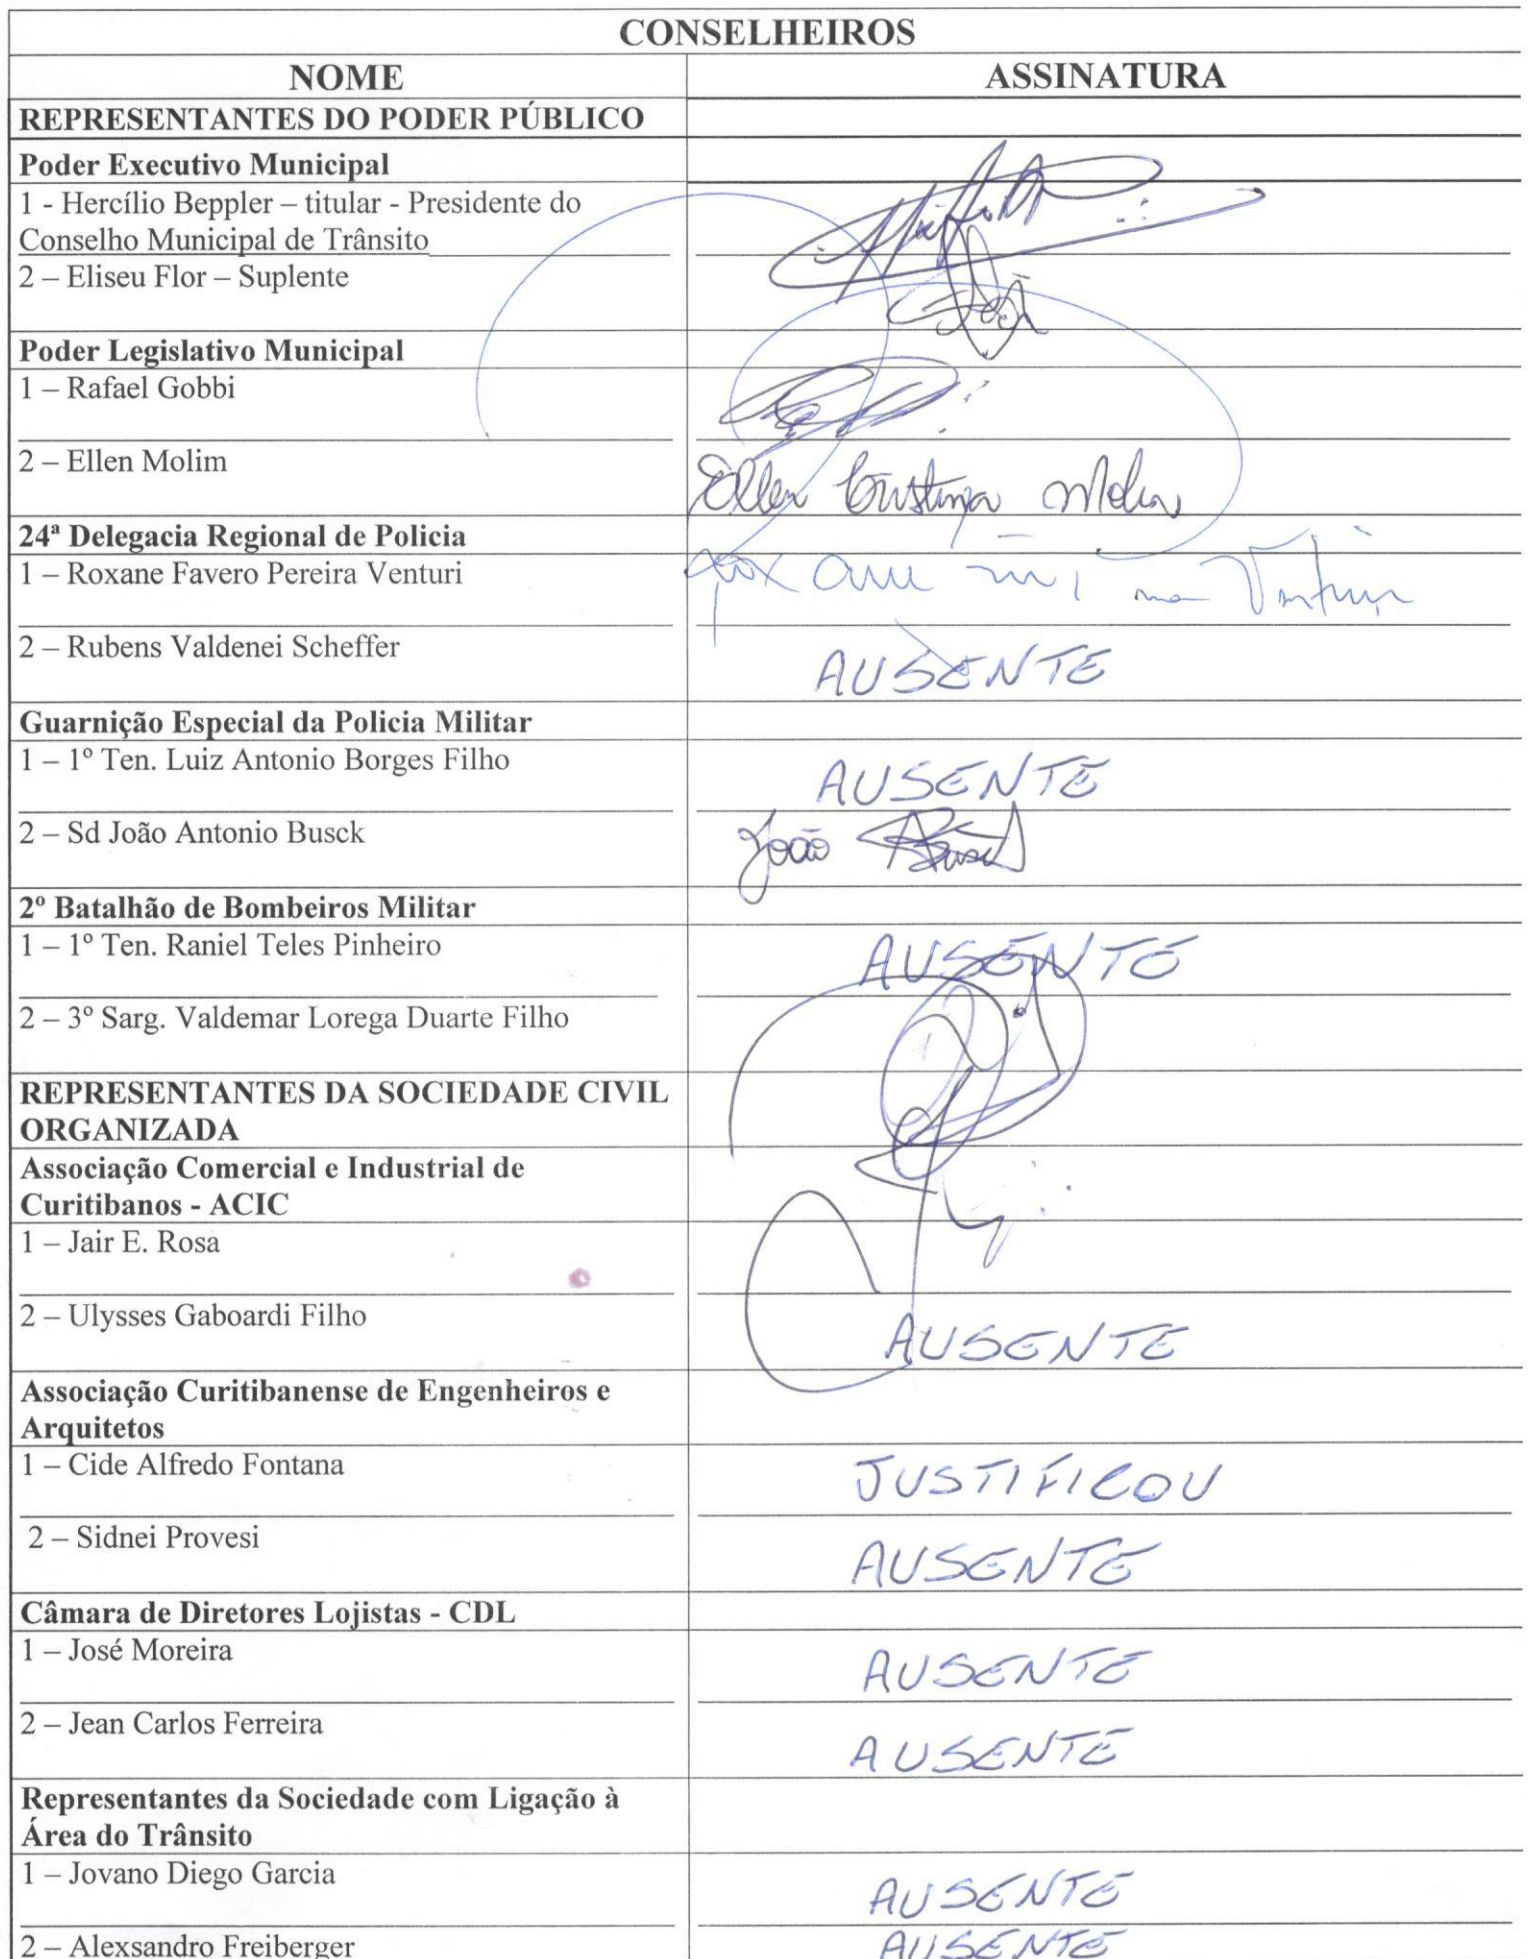 CONSELHEIROS
NOME ASSINATURA
REPRESENTANTES DO PODER PÚBLICO
Poder Executivo Municipal
1 - Hercílio Beppler – titular - Presidente do
Conselho Municipal de Trânsito
2 – Eliseu Flor – Suplente
Poder Legislativo Municipal
1 – Rafael Gobbi
2 – Ellen Molim
Ellen Cristina Molin
24ª Delegacia Regional de Policia
1 – Roxane Favero Pereira Venturi
2 – Rubens Valdenei Scheffer AUSENTE
Guarnição Especial da Policia Militar
1 – 1º Ten. Luiz Antonio Borges Filho AUSENTE
2 – Sd João Antonio Busck João
2º Batalhão de Bombeiros Militar
1 – 1º Ten. Raniel Teles Pinheiro AUSENTE
2 – 3º Sarg. Valdemar Lorega Duarte Filho
REPRESENTANTES DA SOCIEDADE CIVIL
ORGANIZADA
Associação Comercial e Industrial de
Curitibanos - ACIC
1 – Jair E. Rosa
2 – Ulysses Gaboardi Filho AUSENTE
Associação Curitibanense de Engenheiros e
Arquitetos
1 – Cide Alfredo Fontana JUSTIFICOU
2 – Sidnei Provesi AUSENTE
Câmara de Diretores Lojistas - CDL
1 – José Moreira AUSENTE
2 – Jean Carlos Ferreira AUSENTE
Representantes da Sociedade com Ligação à
Área do Trânsito
1 – Jovano Diego Garcia AUSENTE
2 – Alexsandro Freiberger AUSENTE